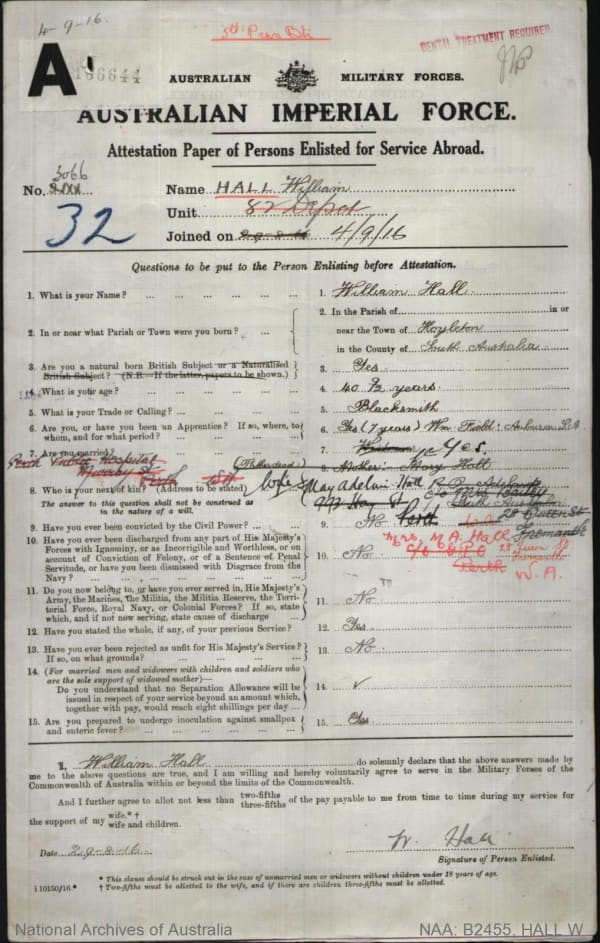 4-9-16.
3rd Pnrs Btn
DENTAL TREATMENT REQUIRED
A
AUSTRALIAN MILITARY FORCES.
AUSTRALIAN IMPERIAL FORCE.
Attestation Paper of Persons Enlisted for Service Abroad.
3066
No.
Name HALL William
32
Unit 82 Depot
Joined on 29-8-16 4/9/16
Questions to be put to the Person Enlisting before Attestation.
1. What is your Name? ... 1. William Hall
2. In or near what Parish or Town were you born? ... 2. In the Parish of in or
near the Town of Hoyleton
in the County of South Australia
3. Are you a natural born British Subject or a Naturalised
British Subject? (N.B.—If the latter, papers to be shown.) 3. Yes
4. What is your age? ... 4. 40 6/12 years
5. What is your Trade or Calling? ... 5. Blacksmith
6. Are you, or have you been an Apprentice? If so, where, to
whom, and for what period? ... 6. Yes (7 years) Wm. Field: Auburn S.A.
7. Are you married? ... 7. Yes.
Perth Public Hospital
Murray St
Perth WA
Mother: Mary Hall
8. Who is your next of kin? (Address to be stated) wife May Adelvin Hall
The answer to this question shall not be construed as
in the nature of a will.
977 Hay St Perth
28 Queen St
Fremantle
9. Have you ever been convicted by the Civil Power? ... 9. No
10. Have you ever been discharged from any part of His Majesty's
Forces with Ignominy, or as Incorrigible and Worthless, or on
account of Conviction of Felony, or of a Sentence of Penal
Servitude, or have you been dismissed with Disgrace from the
Navy? ... 10. No
Mrs. M A. Hall
c/o G.P.O 28 Queen St
Perth Fremantle
W.A.
11. Do you now belong to, or have you ever served in, His Majesty's
Army, the Marines, the Militia, the Militia Reserve, the Terri-
torial Force, Royal Navy, or Colonial Forces? If so, state
which, and if not now serving, state cause of discharge ... 11. No
12. Have you stated the whole, if any, of your previous Service? 12. Yes
13. Have you ever been rejected as unfit for His Majesty's Service?
If so, on what grounds? ... 13. No
14. (For married men and widowers with children and soldiers who
are the sole support of widowed mother)—
Do you understand that no Separation Allowance will be
issued in respect of your service beyond an amount which,
together with pay, would reach eight shillings per day ... 14. ✓
15. Are you prepared to undergo inoculation against smallpox
and enteric fever? ... 15. Yes
I, William Hall do solemnly declare that the above answers made by
me to the above questions are true, and I am willing and hereby voluntarily agree to serve in the Military Forces of the
Commonwealth of Australia within or beyond the limits of the Commonwealth.
And I further agree to allot not less than two-fifths three-fifths of the pay payable to me from time to time during my service for
the support of my wife.* † wife and children.
W. Hall
Date 29-8-16.
Signature of Person Enlisted.
i 10150/16.*
* This clause should be struck out in the case of unmarried men or widowers without children under 18 years of age.
† Two-fifths must be allotted to the wife, and if there are children three-fifths must be allotted.
National Archives of Australia
NAA: B2455, HALL W